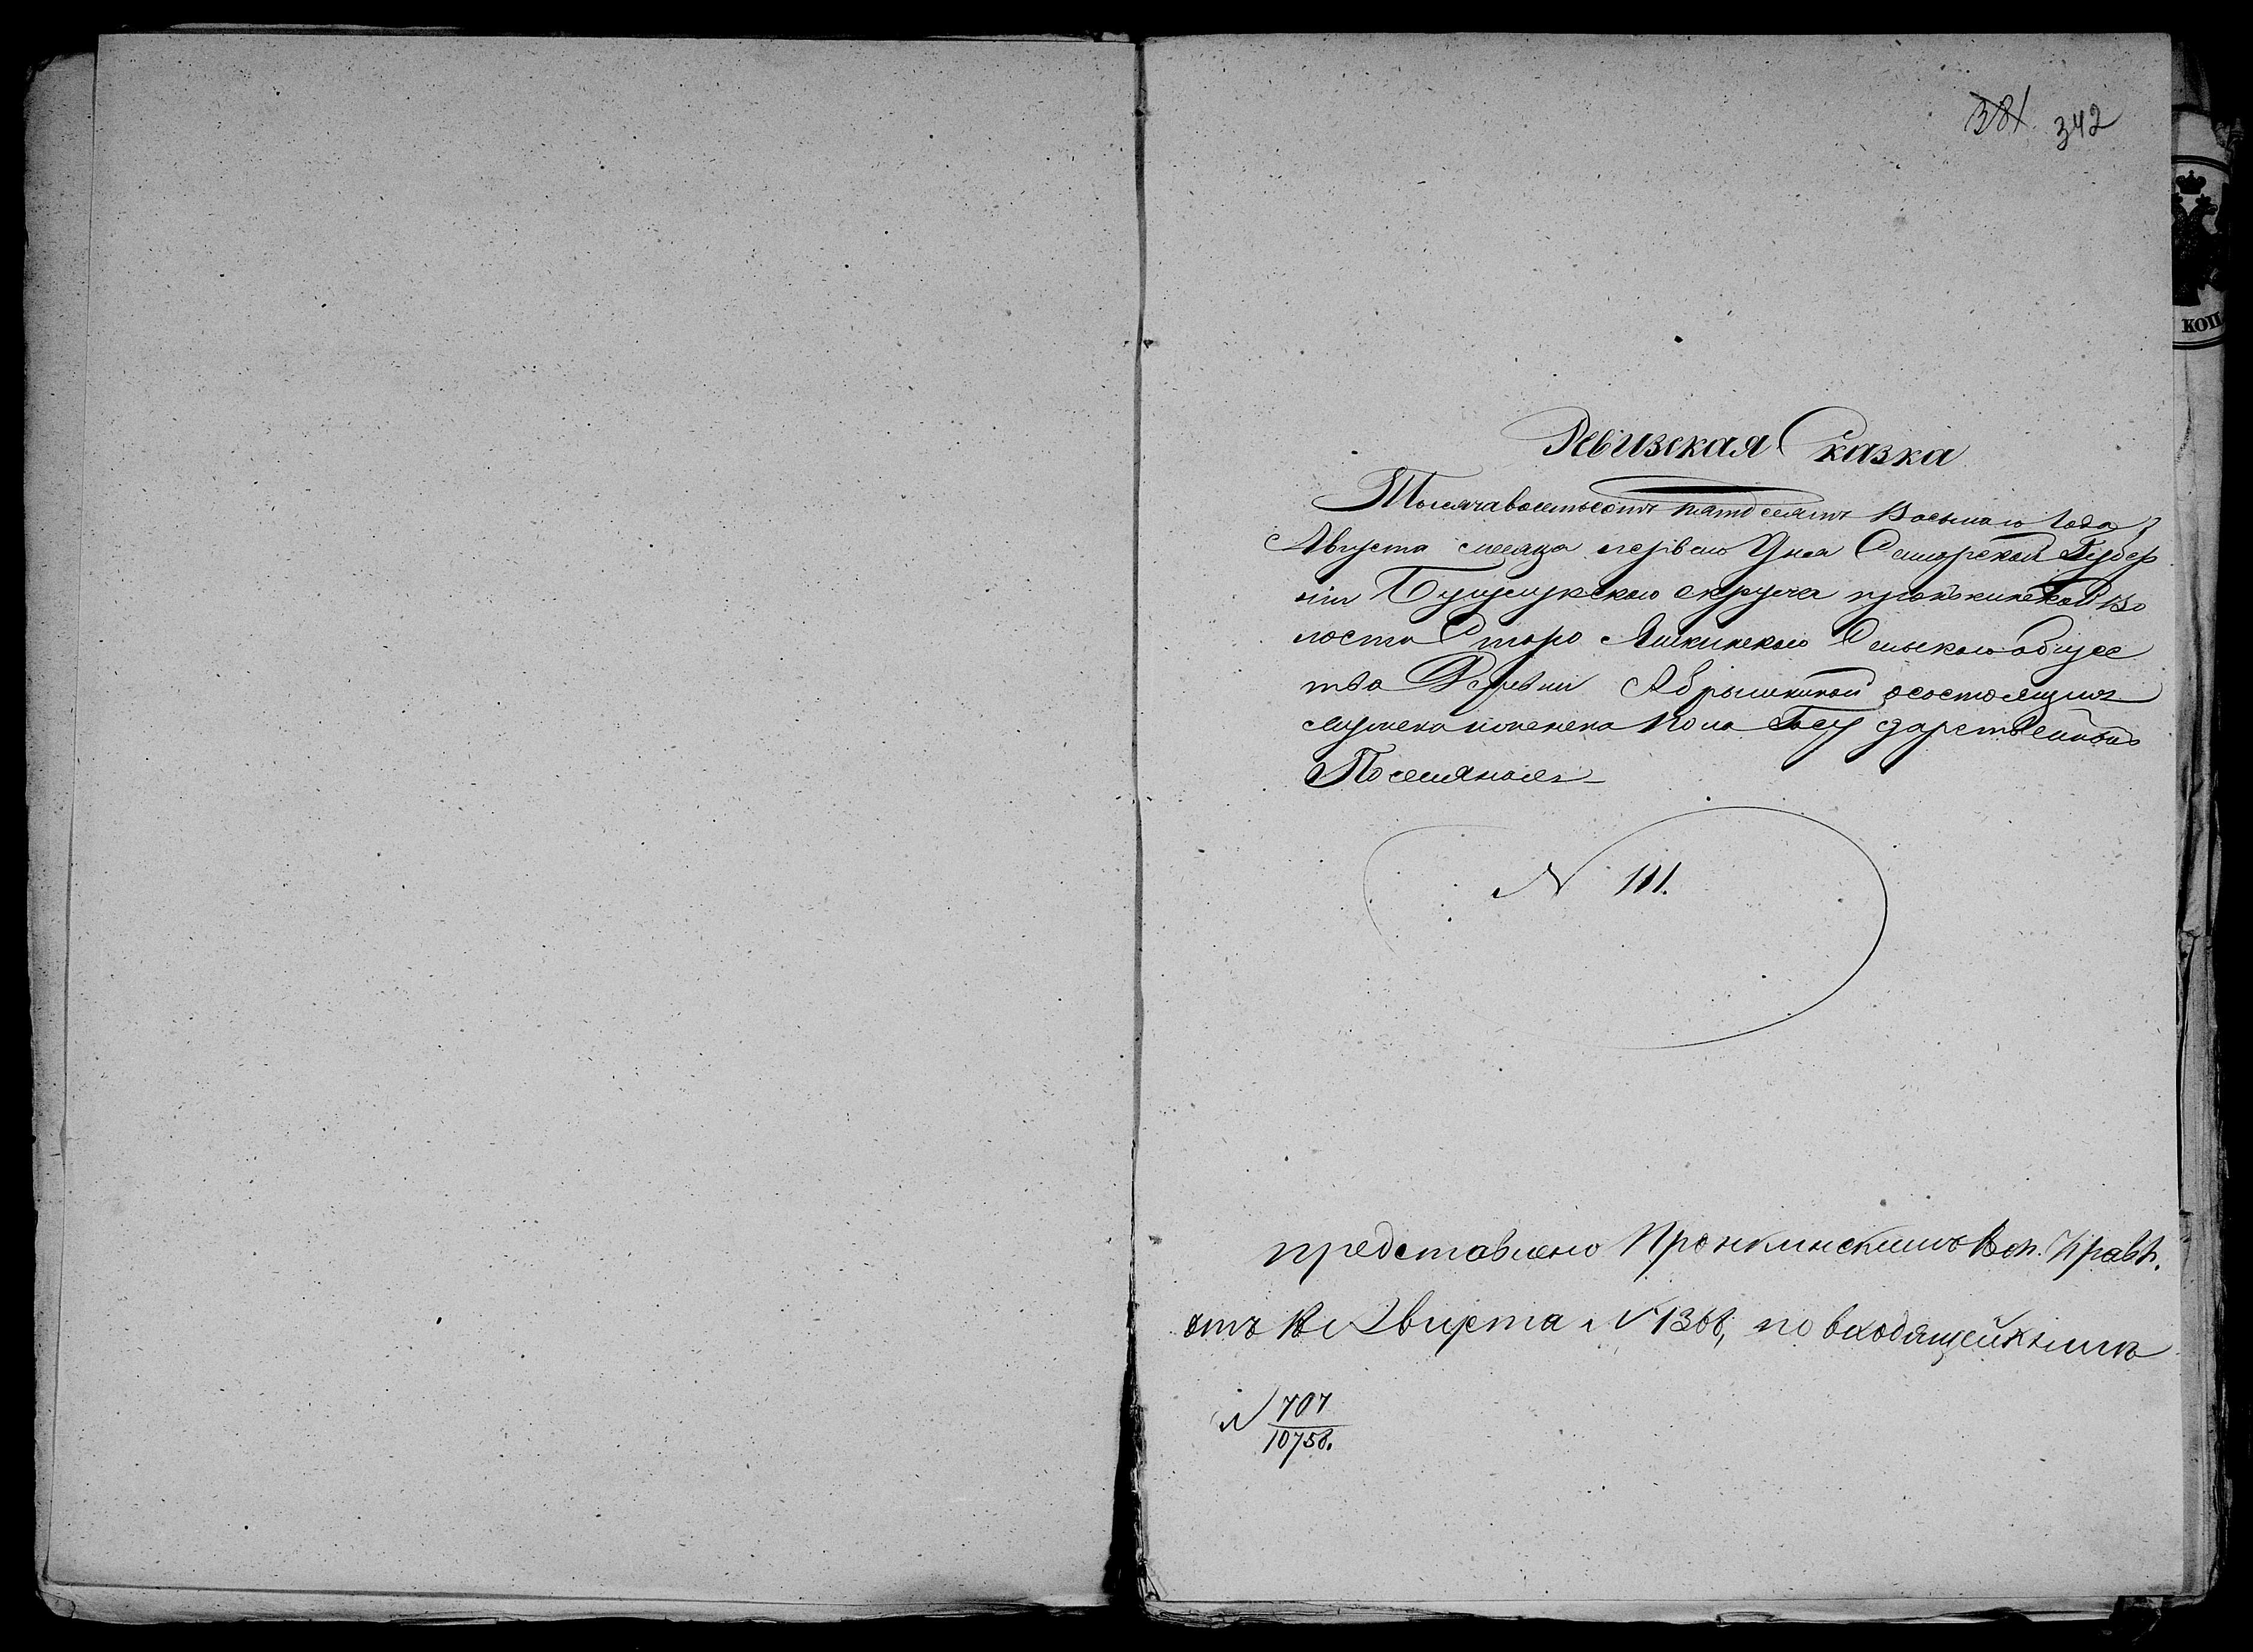 381 342
КОП
Ревизская Сказка
Тысячавосемьсотъ пятдесятъ Восьмаго Года,
Августа месяца перваго Дня Самарской Губер
нiи Бузулукскаго округа пронькинской Во
лости Старо Яшкинскаго Сельскаго общес
тва Деревни Абрышкиной осостоящихъ
мужеска иженска Пола Государственныхъ
Поселянахъ
N 111.
представлено Пронкинскимъ Вол. Правл.
отъ Августа N 1368, по входящей книги
N 707
10758.